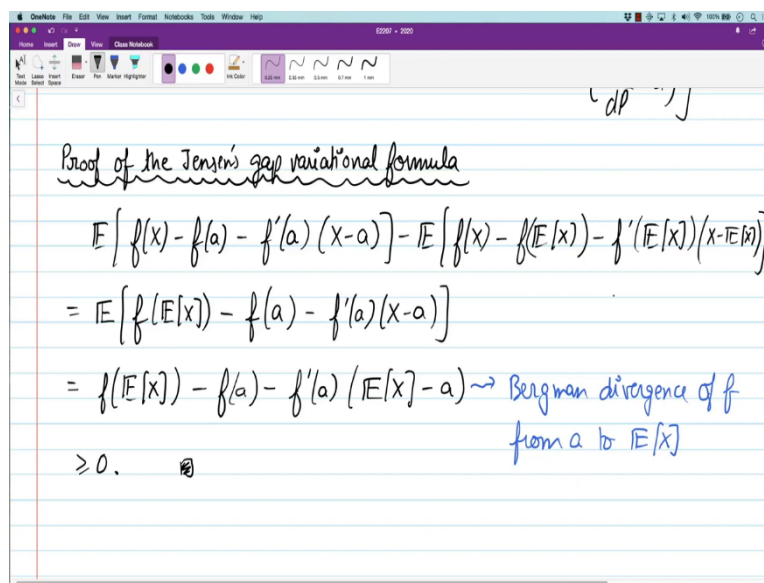 OneNote File Edit View Insert Format Notebooks Tools Window Help 100%
E2207 - 2020
Home Insert Draw View Class Notebook
Text Mode Lasso Select Insert Space Eraser Pen Marker Highlighter Ink Color 0.25 mm 0.35 mm 0.5 mm 0.7 mm 1 mm
dP
Proof of the Jensen's gap variational formula
𝔼[f(X) - f(a) - f'(a)(X-a)] - 𝔼[f(X) - f(𝔼[X]) - f'(𝔼[X])(X-𝔼[X])]
= 𝔼[f(𝔼[X]) - f(a) - f'(a)(X-a)]
= f(𝔼[X]) - f(a) - f'(a)(𝔼[X]-a) ⇝ Bergman divergence of f
from a to 𝔼[X]
≥ 0.